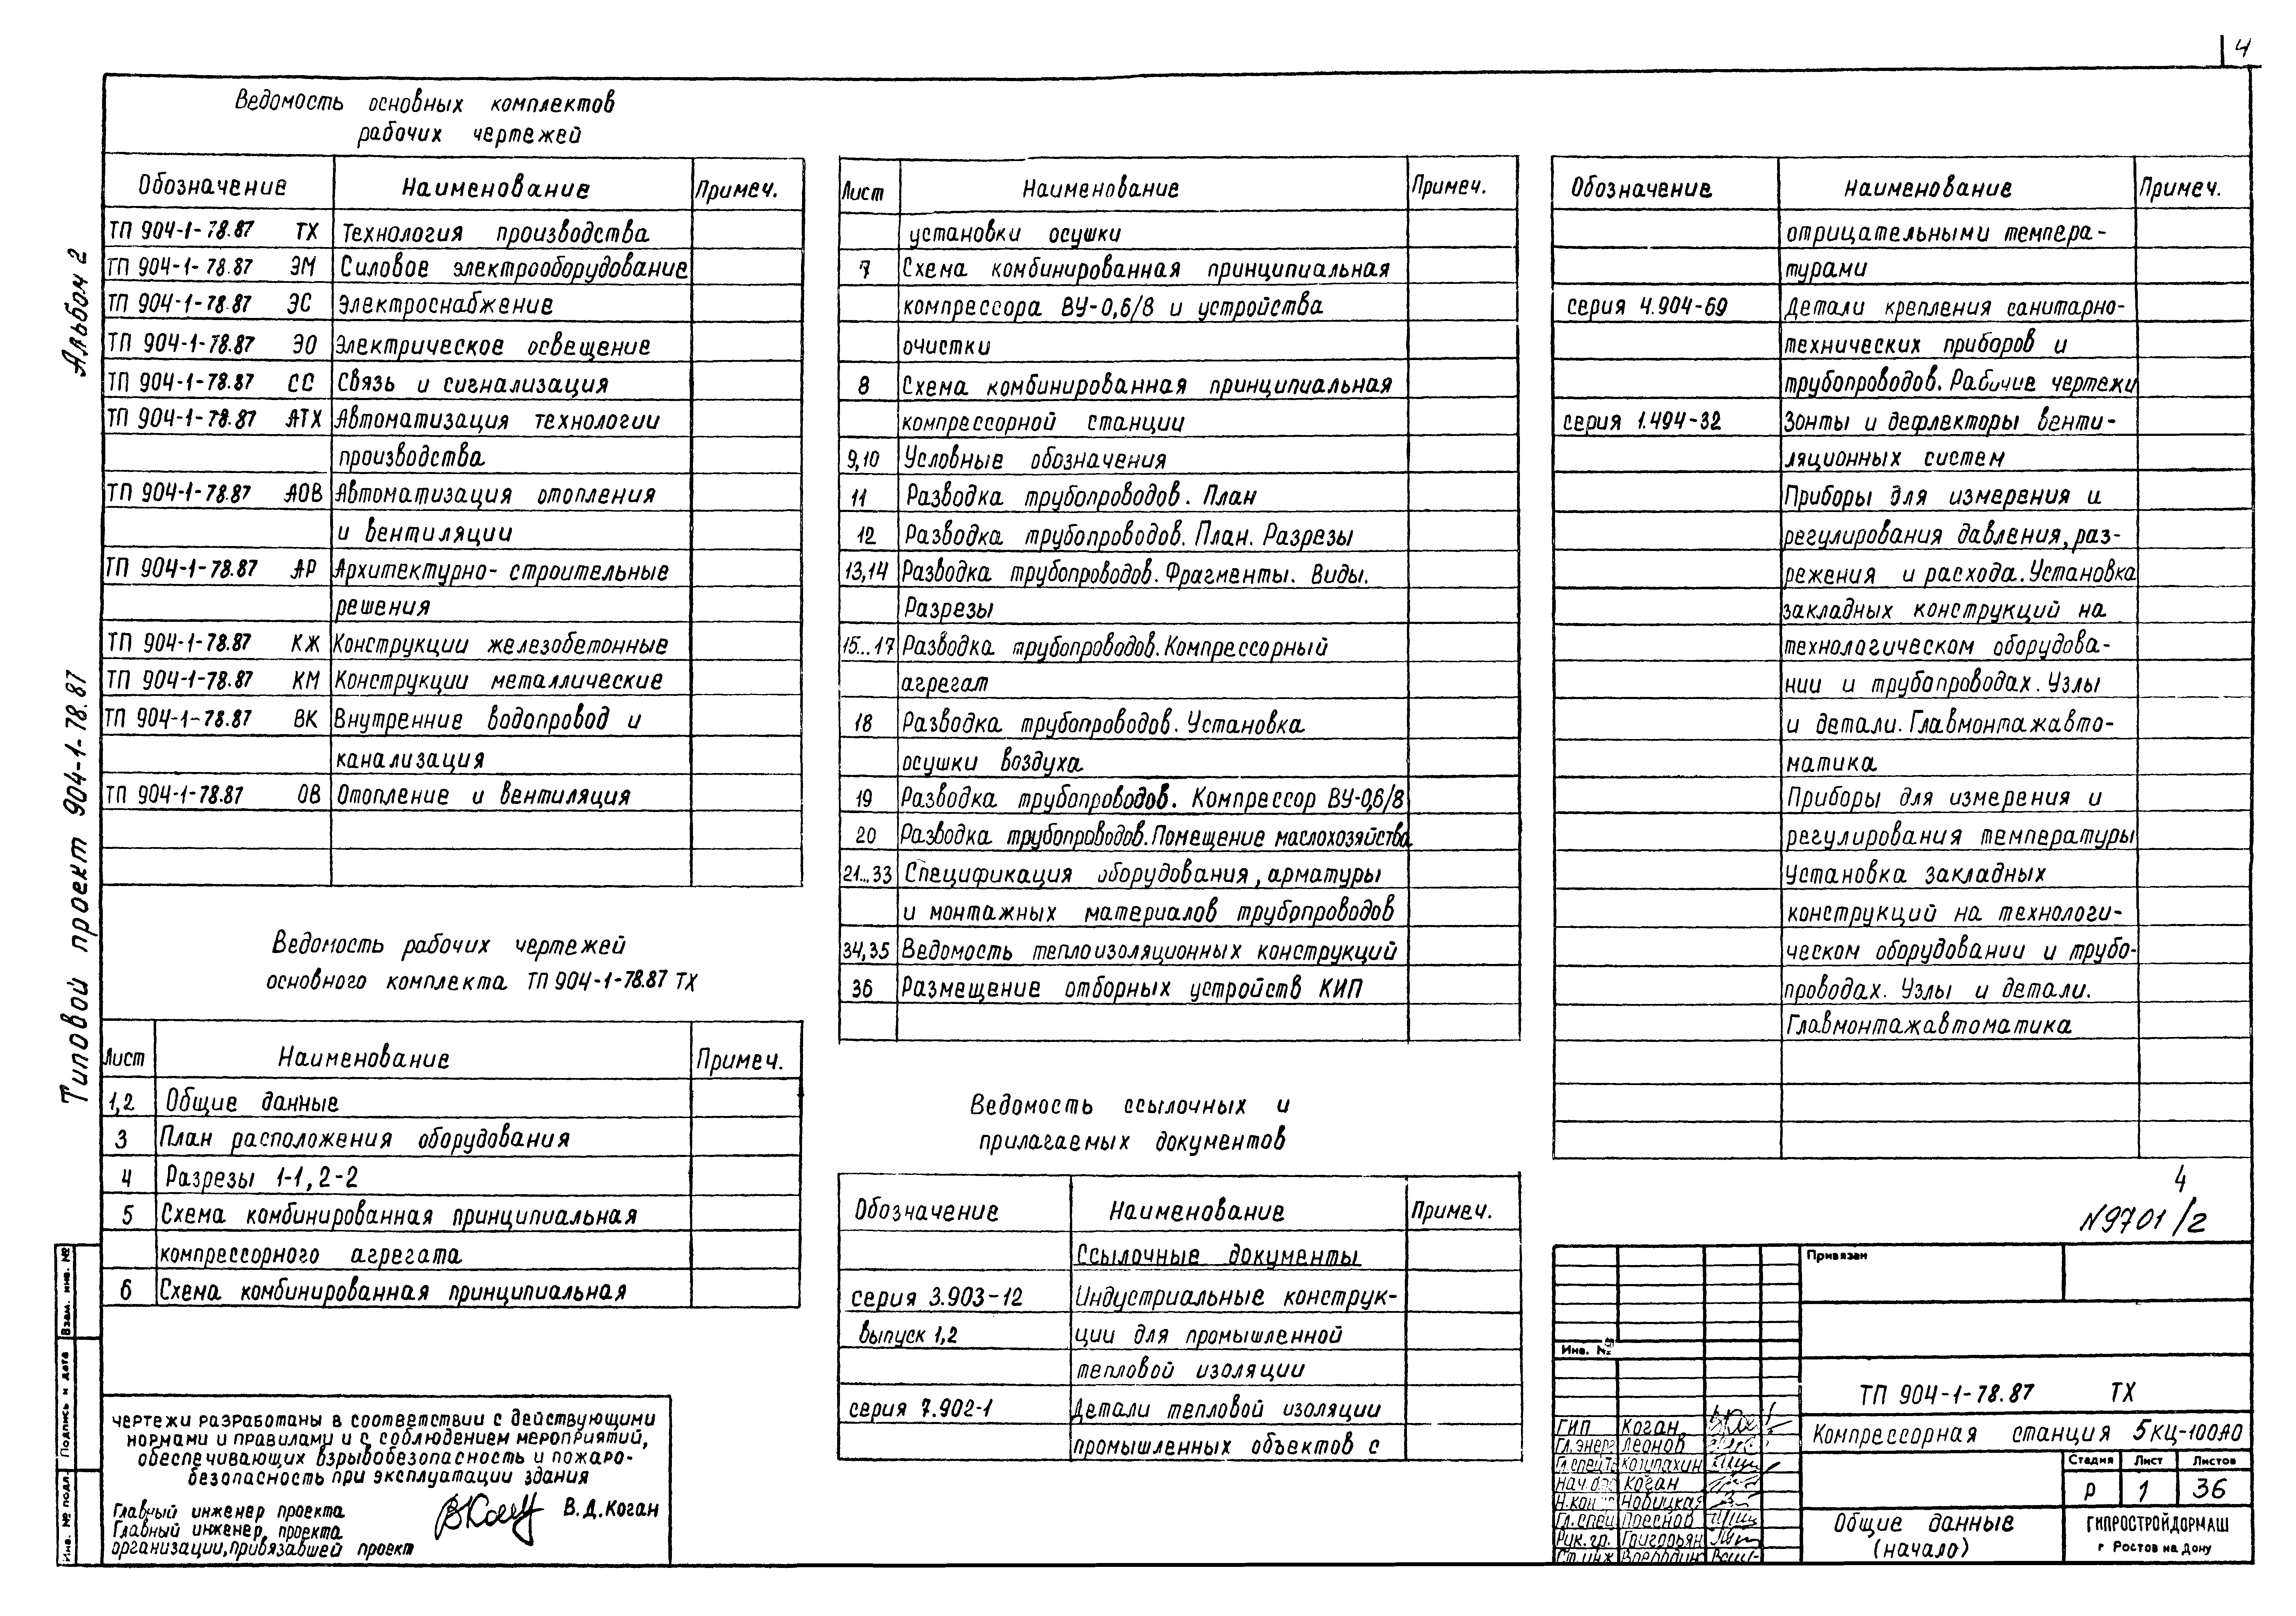 4
Альбом 2
Типовой проект 904-1-78.87
Ведомость основных комплектов
рабочих чертежей
Обозначение Наименование Примеч.
ТП 904-1-78.87 ТХ Технология производства
ТП 904-1-78.87 ЭМ Силовое электрооборудование
ТП 904-1-78.87 ЭС Электроснабжение
ТП 904-1-78.87 ЭО Электрическое освещение
ТП 904-1-78.87 СС Связь и сигнализация
ТП 904-1-78.87 АТХ Автоматизация технологии
производства
ТП 904-1-78.87 АОВ Автоматизация отопления
и вентиляции
ТП 904-1-78.87 АР Архитектурно-строительные
решения
ТП 904-1-78.87 КЖ Конструкции железобетонные
ТП 904-1-78.87 КМ Конструкции металлические
ТП 904-1-78.87 ВК Внутренние водопровод и
канализация
ТП 904-1-78.87 ОВ Отопление и вентиляция
Ведомость рабочих чертежей
основного комплекта ТП 904-1-78.87 ТХ
Лист Наименование Примеч.
1,2 Общие данные
3 План расположения оборудования
4 Разрезы 1-1, 2-2
5 Схема комбинированная принципиальная
компрессорного агрегата
6 Схема комбинированная принципиальная
Чертежи разработаны в соответствии с действующими
нормами и правилами и с соблюдением мероприятий,
обеспечивающих взрывобезопасность и пожаро-
безопасность при эксплуатации здания
Главный инженер проекта В.Д.Коган
Главный инженер проекта
организации, привязавшей проект
Взам. инв. №
Подпись и дата
Инв. № подл.
Лист Наименование Примеч.
установки осушки
7 Схема комбинированная принципиальная
компрессора ВУ-0,6/8 и устройства
очистки
8 Схема комбинированная принципиальная
компрессорной станции
9,10 Условные обозначения
11 Разводка трубопроводов. План
12 Разводка трубопроводов. План. Разрезы
13,14 Разводка трубопроводов. Фрагменты. Виды.
Разрезы
15...17 Разводка трубопроводов. Компрессорный
агрегат
18 Разводка трубопроводов. Установка
осушки воздуха
19 Разводка трубопроводов. Компрессор ВУ-0,6/8
20 Разводка трубопроводов. Помещение маслохозяйства
21...33 Спецификация оборудования, арматуры
и монтажных материалов трубопроводов
34,35 Ведомость теплоизоляционных конструкций
36 Размещение отборных устройств КИП
Ведомость ссылочных и
прилагаемых документов
Обозначение Наименование Примеч.
Ссылочные документы
серия 3.903-12 Индустриальные конструк-
выпуск 1,2 ции для промышленной
тепловой изоляции
серия 7.902-1 Детали тепловой изоляции
промышленных объектов с
Обозначение Наименование Примеч.
отрицательными темпера-
турами
серия 4.904-69 Детали крепления санитарно-
технических приборов и
трубопроводов. Рабочие чертежи
серия 1.494-32 Зонты и дефлекторы венти-
ляционных систем
Приборы для измерения и
регулирования давления, раз-
режения и расхода. Установка
закладных конструкций на
технологическом оборудова-
нии и трубопроводах. Узлы
и детали. Главмонтажавто-
матика
Приборы для измерения и
регулирования температуры
Установка закладных
конструкций на технологи-
ческом оборудовании и трубо-
проводах. Узлы и детали.
Главмонтажавтоматика
4
N9701/2
Привязан
Инв. №
ТП 904-1-78.87 ТХ
Компрессорная станция 5КЦ-100А0
ГИП Коган
Гл.энерг Леонов
Нач.о Коган
Н.кон Новицкая
Гл.спец
Рук.гр. Григорьян
Ст.инж
Стадия Лист Листов
Р 1 36
Общие данные
(начало)
ГИПРОСТРОЙДОРМАШ
г Ростов на Дону